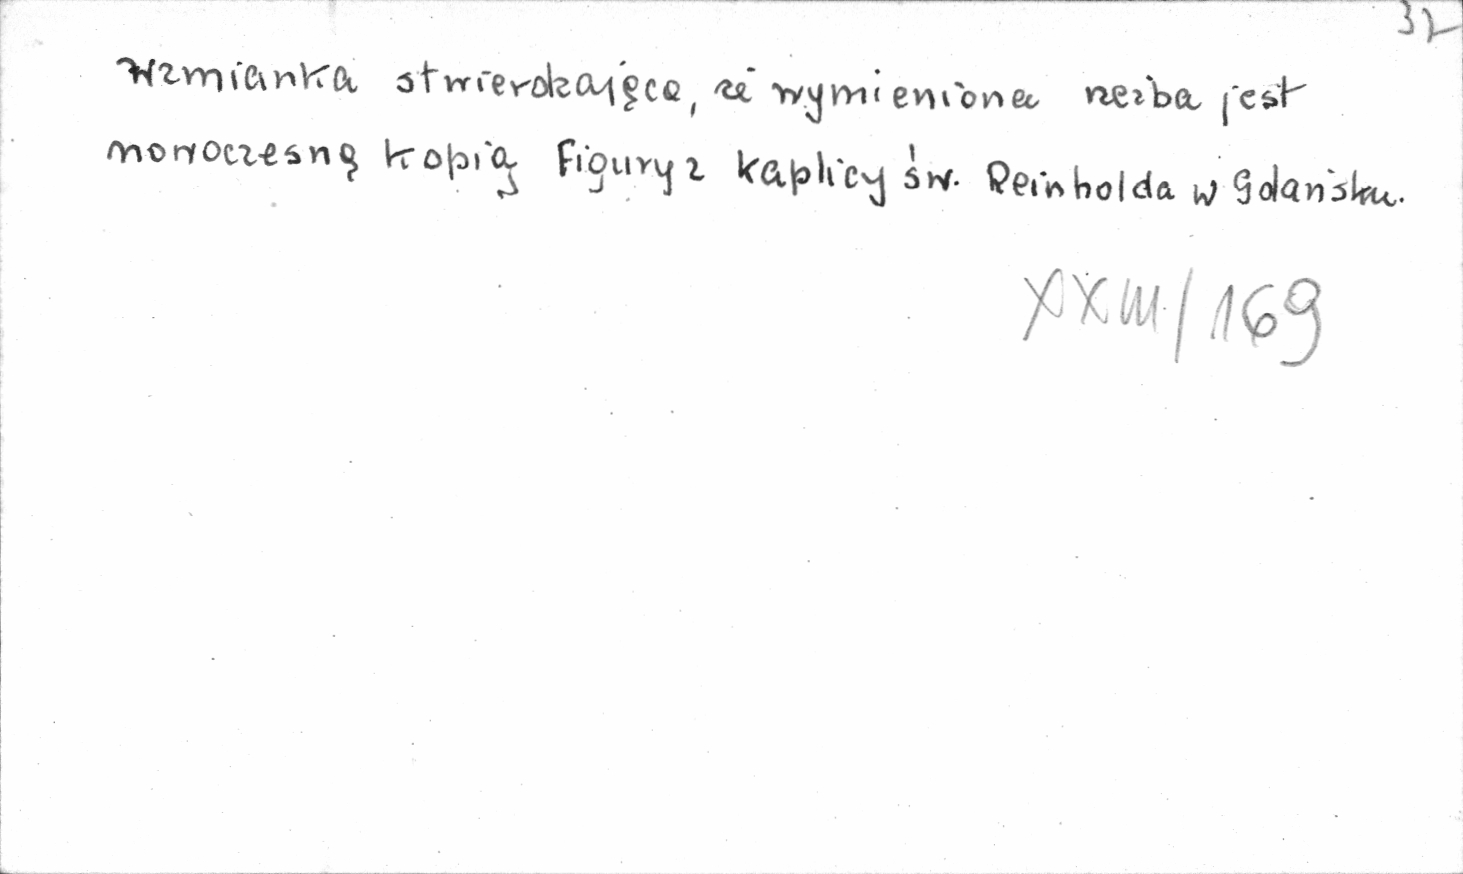 32
Wzmianka stwierdzająca, że wymieniona rzeźba jest
nowoczesną kopią figury z kaplicy św. Reinholda w Gdańsku.
XXIII/169